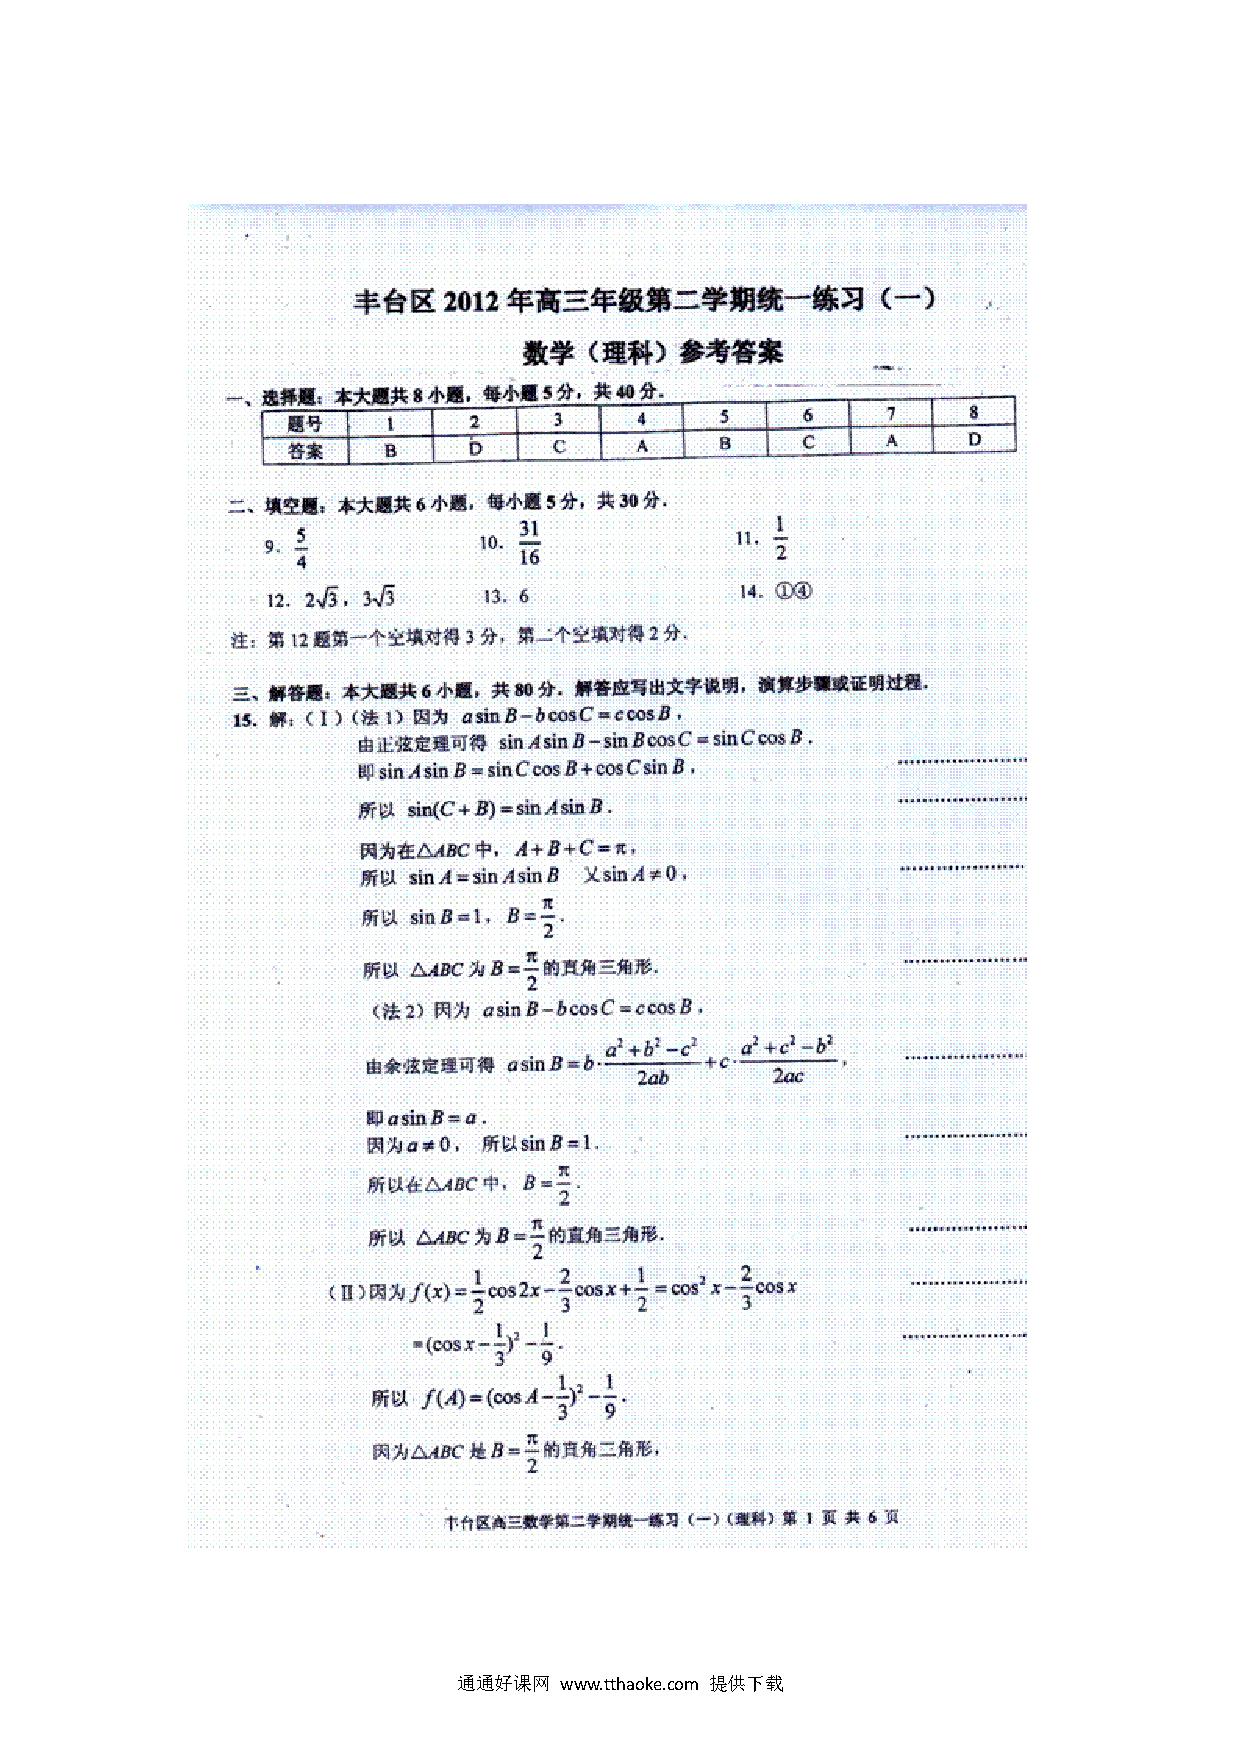 丰台区 2012 年高三年级第二学期统一练习（一）
数学（理科）参考答案
一、选择题：本大题共 8 小题，每小题 5 分，共 40 分．
题号 1 2 3 4 5 6 7 8
答案 B D C A B C A D
二、填空题：本大题共 6 小题，每小题 5 分，共 30 分．
9． 5/4 10． 31/16 11． 1/2
12． 2√3，3√3 13． 6 14． ①④
注：第 12 题第一个空填对得 3 分，第二个空填对得 2 分．
三、解答题：本大题共 6 小题，共 80 分．解答应写出文字说明，演算步骤或证明过程．
15．解：（Ⅰ）（法 1）因为 a sin B − b cos C = c cos B，
由正弦定理可得 sin A sin B − sin B cos C = sin C cos B．
即 sin A sin B = sin C cos B + cos C sin B，
所以 sin(C + B) = sin A sin B．
因为在△ABC 中，A + B + C = π，
所以 sin A = sin A sin B 又 sin A ≠ 0，
所以 sin B = 1，B = π/2．
所以 △ABC 为 B = π/2 的直角三角形．
（法 2）因为 a sin B − b cos C = c cos B，
由余弦定理可得 a sin B = b·(a² + b² − c²)/2ab + c·(a² + c² − b²)/2ac，
即 a sin B = a．
因为 a ≠ 0， 所以 sin B = 1．
所以在△ABC 中，B = π/2．
所以 △ABC 为 B = π/2 的直角三角形．
（Ⅱ）因为 f(x) = 1/2 cos 2x − 2/3 cos x + 1/2 = cos² x − 2/3 cos x
= (cos x − 1/3)² − 1/9．
所以 f(A) = (cos A − 1/3)² − 1/9．
因为△ABC 是 B = π/2 的直角三角形，
丰台区高三数学第二学期统一练习（一）（理科）第 1 页 共 6 页
通通好课网 www.tthaoke.com 提供下载